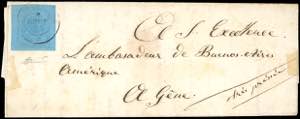 A S. Excellence
L'ambassadeur de Buenos-Aires
Amérique
A Gêne
très pressée